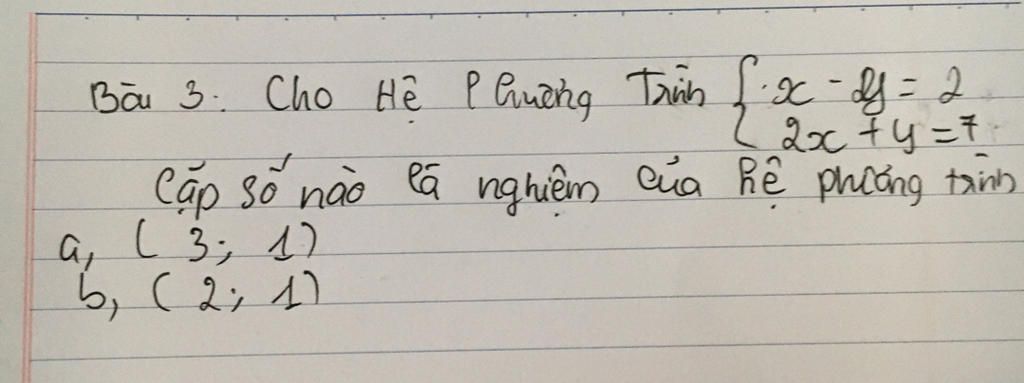 Bài 3: Cho Hệ Phương Trình { x - 2y = 2
2x + y = 7
Cặp số nào là nghiệm của hệ phương trình
a, ( 3; 1)
b, ( 2; 1)